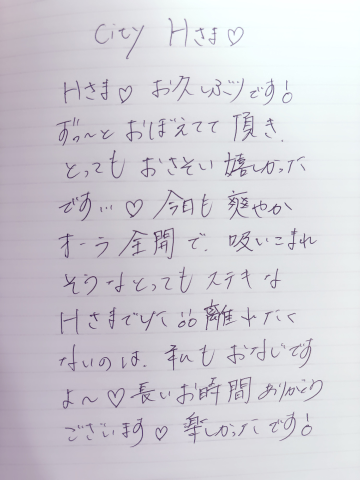 city Hさま♡
Hさま♡ お久しぶりです!
ずっ〜と おぼえてて 頂き、
とっても おさそい 嬉しかった
です…♡ 今日も 爽やか
オーラ 全開で、吸いこまれ
そうなとっても ステキな
Hさまでした 離れたく
ないのは、私も おなじです
よ〜♡ 長いお時間 ありがとう
ございます♡ 楽しかったです!